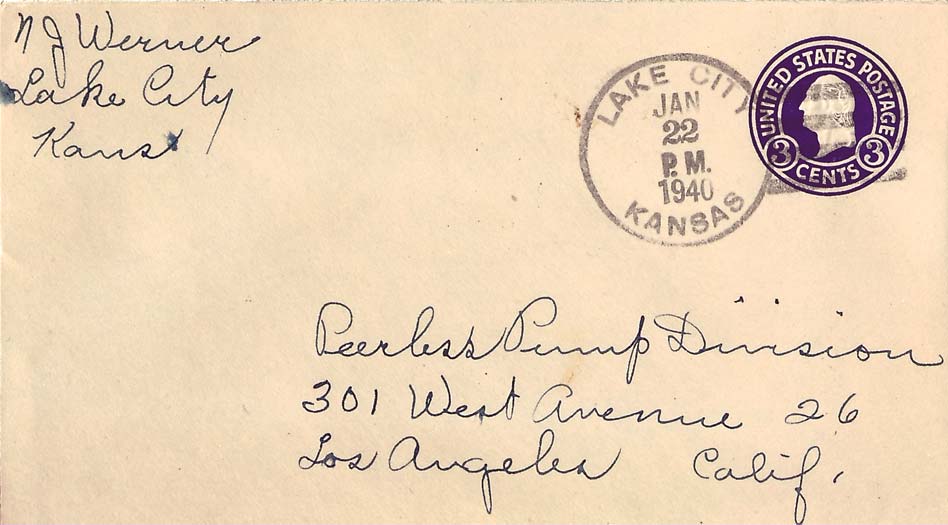 N J Werner
Lake City
Kans
LAKE CITY
JAN
22
P.M.
1940
KANSAS
UNITED STATES POSTAGE
3 CENTS 3
Peerless Pump Division
301 West Avenue 26
Los Angeles Calif.